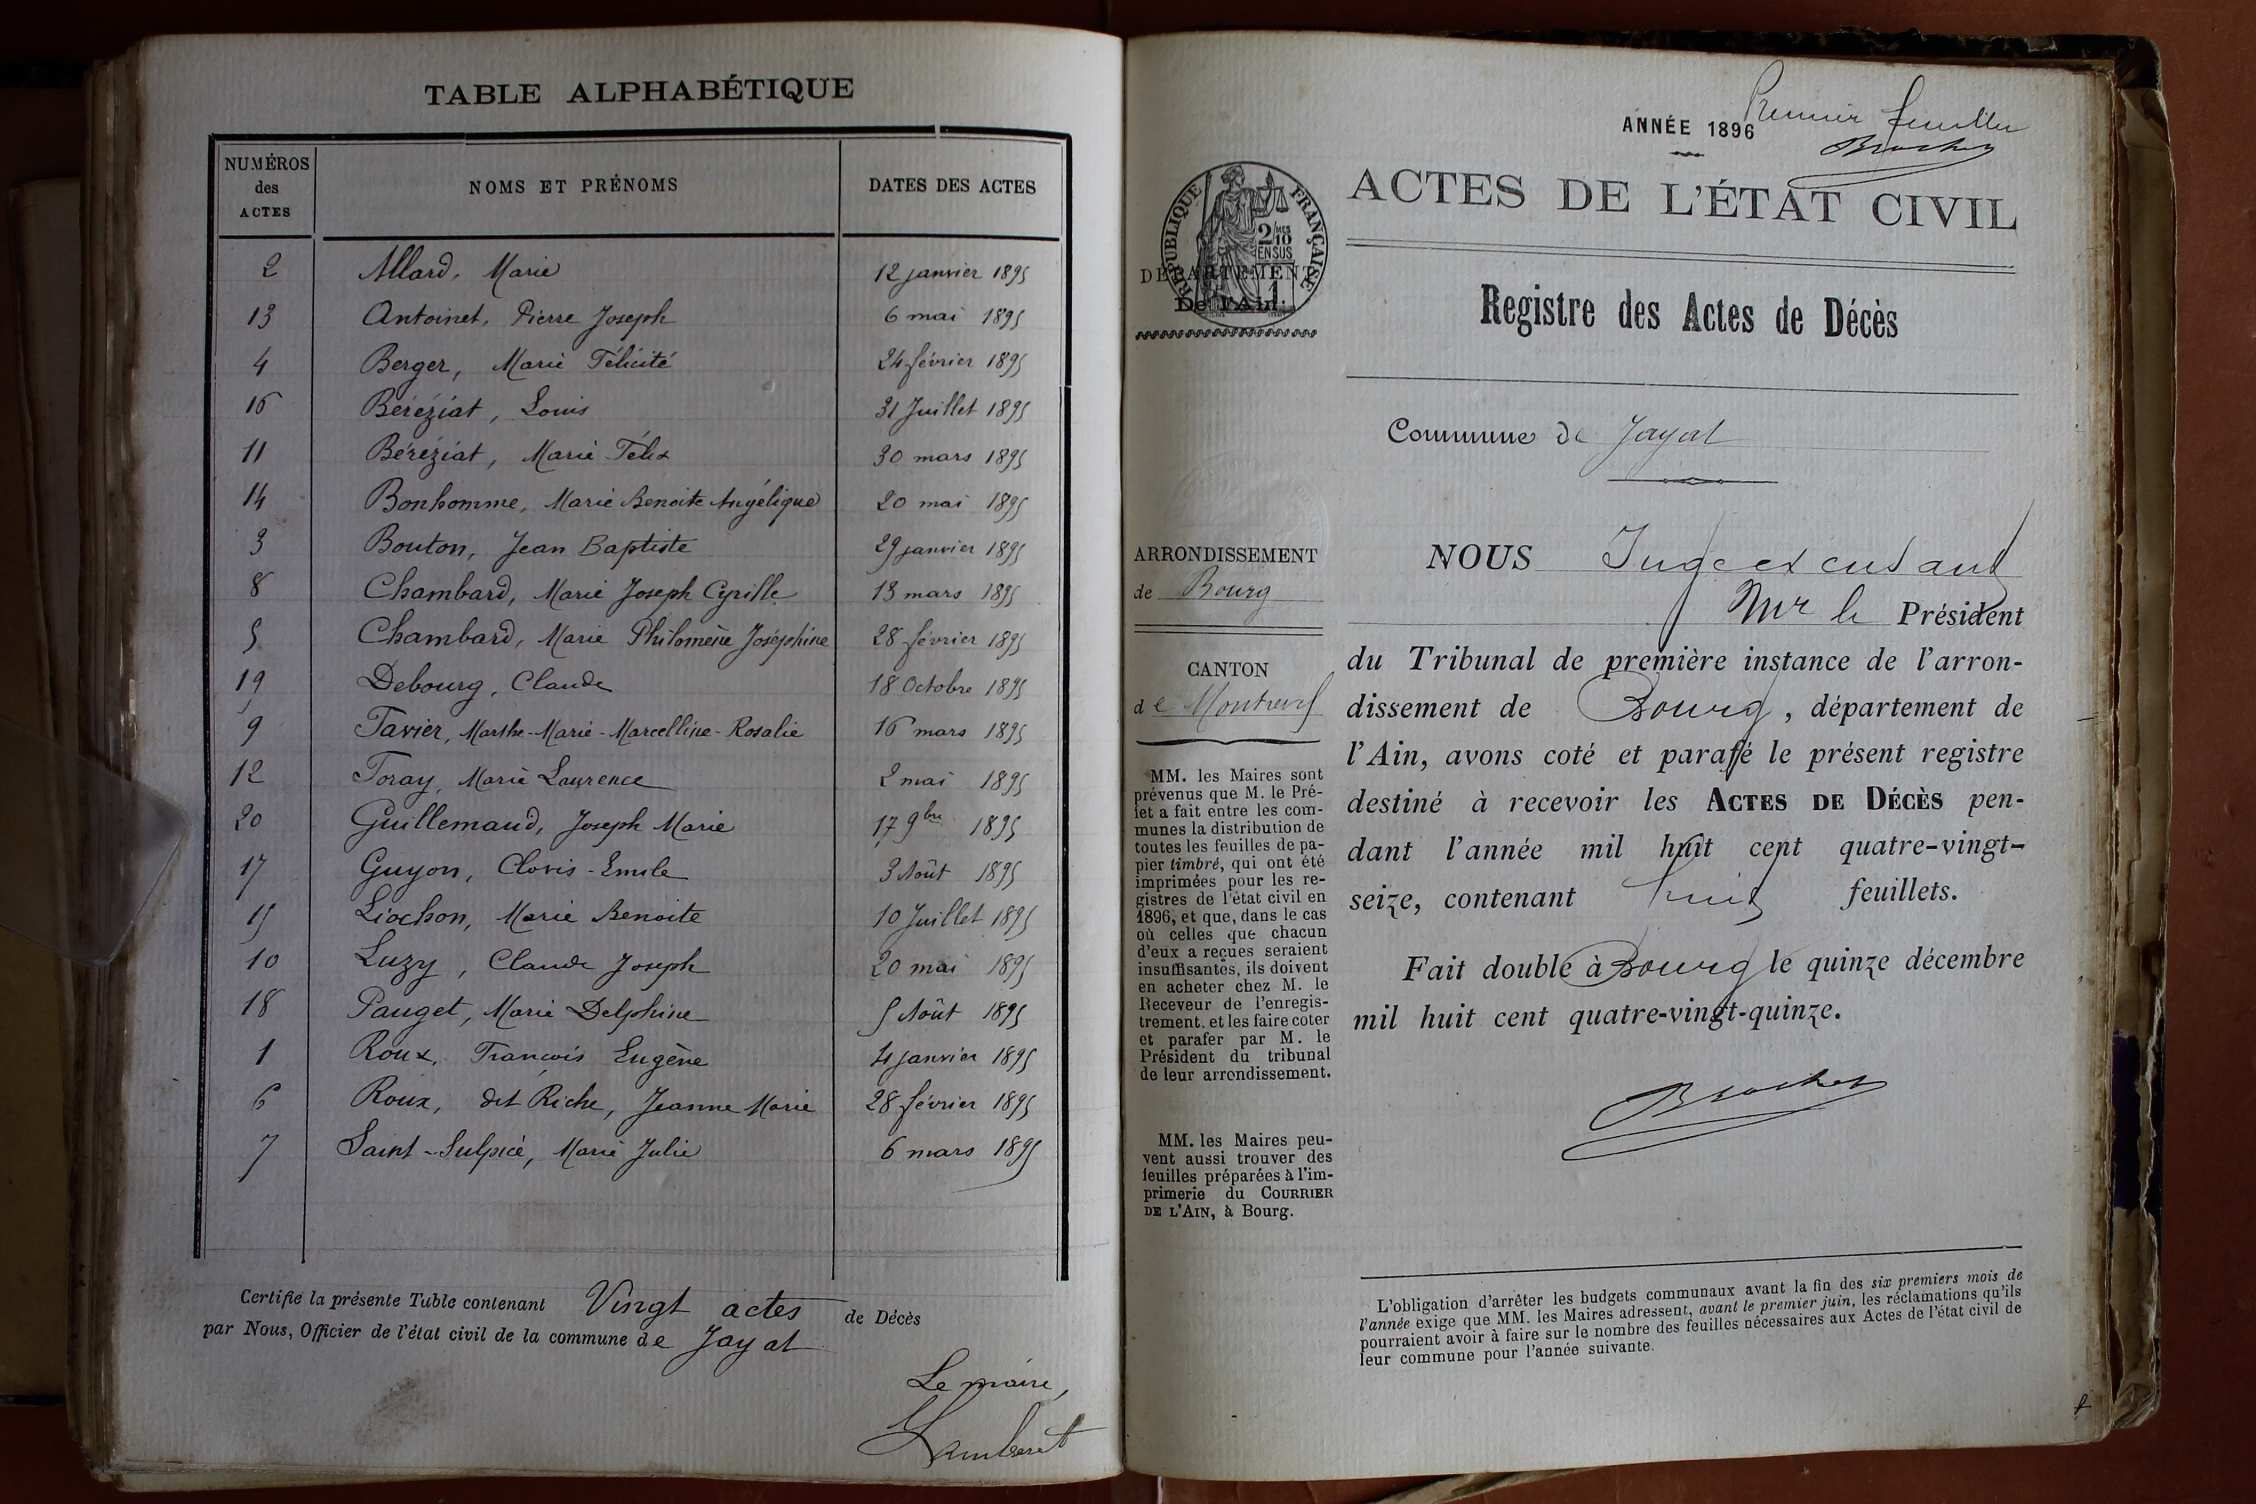 TABLE ALPHABÉTIQUE
NUMÉROS des ACTES | NOMS ET PRÉNOMS | DATES DES ACTES
2 Allard, Marie 12 janvier 1895
13 Antoinet, Pierre Joseph 6 mai 1895
4 Berger, Marie Félicité 24 février 1895
16 Béréziat, Louis 31 Juillet 1895
11 Béréziat, Marie Félix 30 mars 1895
14 Bonhomme, Marie Benoite Angélique 20 mai 1895
3 Bouton, Jean Baptiste 29 janvier 1895
8 Chambard, Marie Joseph Cyrille 13 mars 1895
5 Chambard, Marie Philomène Joséphine 28 février 1895
19 Debourg, Claude 18 Octobre 1895
9 Favier, Marthe-Marie-Marcelline-Rosalie 16 mars 1895
12 Foray, Marie Laurence 2 mai 1895
20 Guillemaud, Joseph Marie 17 9bre 1895
17 Guyon, Clovis-Emile 3 Août 1895
15 Liochon, Marie Benoite 10 Juillet 1895
10 Luzy, Claude Joseph 20 mai 1895
18 Pauget, Marie Delphine 5 Août 1895
1 Roux, François Eugène 4 janvier 1895
6 Roux, dit Riche, Jeanne Marie 28 février 1895
7 Saint-Sulpice, Marie Julie 6 mars 1895
Certifie la présente Table contenant Vingt actes de Décès
par Nous, Officier de l'état civil de la commune de Jayat
Le maire,
ANNÉE 1896
Premier feuillet
Brochet
ACTES DE L'ÉTAT CIVIL
RÉPUBLIQUE FRANÇAISE
2/10 MES
EN SUS
1
DÉPARTEMENT
De l'Ain.
Registre des Actes de Décès
Commune de Jayat
ARRONDISSEMENT
de Bourg
CANTON
de Montrevel
MM. les Maires sont
prévenus que M. le Pré-
fet a fait entre les com-
munes la distribution de
toutes les feuilles de pa-
pier timbré, qui ont été
imprimées pour les re-
gistres de l'état civil en
1896, et que, dans le cas
où celles que chacun
d'eux a reçues seraient
insuffisantes, ils doivent
en acheter chez M. le
Receveur de l'enregis-
trement. et les faire coter
et parafer par M. le
Président du tribunal
de leur arrondissement.
MM. les Maires peu-
vent aussi trouver des
feuilles préparées à l'im-
primerie du COURRIER
DE L'AIN, à Bourg.
NOUS Juge excusant
Mr le Président
du Tribunal de première instance de l'arron-
dissement de Bourg, département de
l'Ain, avons coté et parafé le présent registre
destiné à recevoir les ACTES DE DÉCÈS pen-
dant l'année mil huit cent quatre-vingt-
seize, contenant huit feuillets.
Fait double à Bourg le quinze décembre
mil huit cent quatre-vingt-quinze.
Brochet
L'obligation d'arrêter les budgets communaux avant la fin des six premiers mois de
l'année exige que MM. les Maires adressent, avant le premier juin, les réclamations qu'ils
pourraient avoir à faire sur le nombre des feuilles nécessaires aux Actes de l'état civil de
leur commune pour l'année suivante.